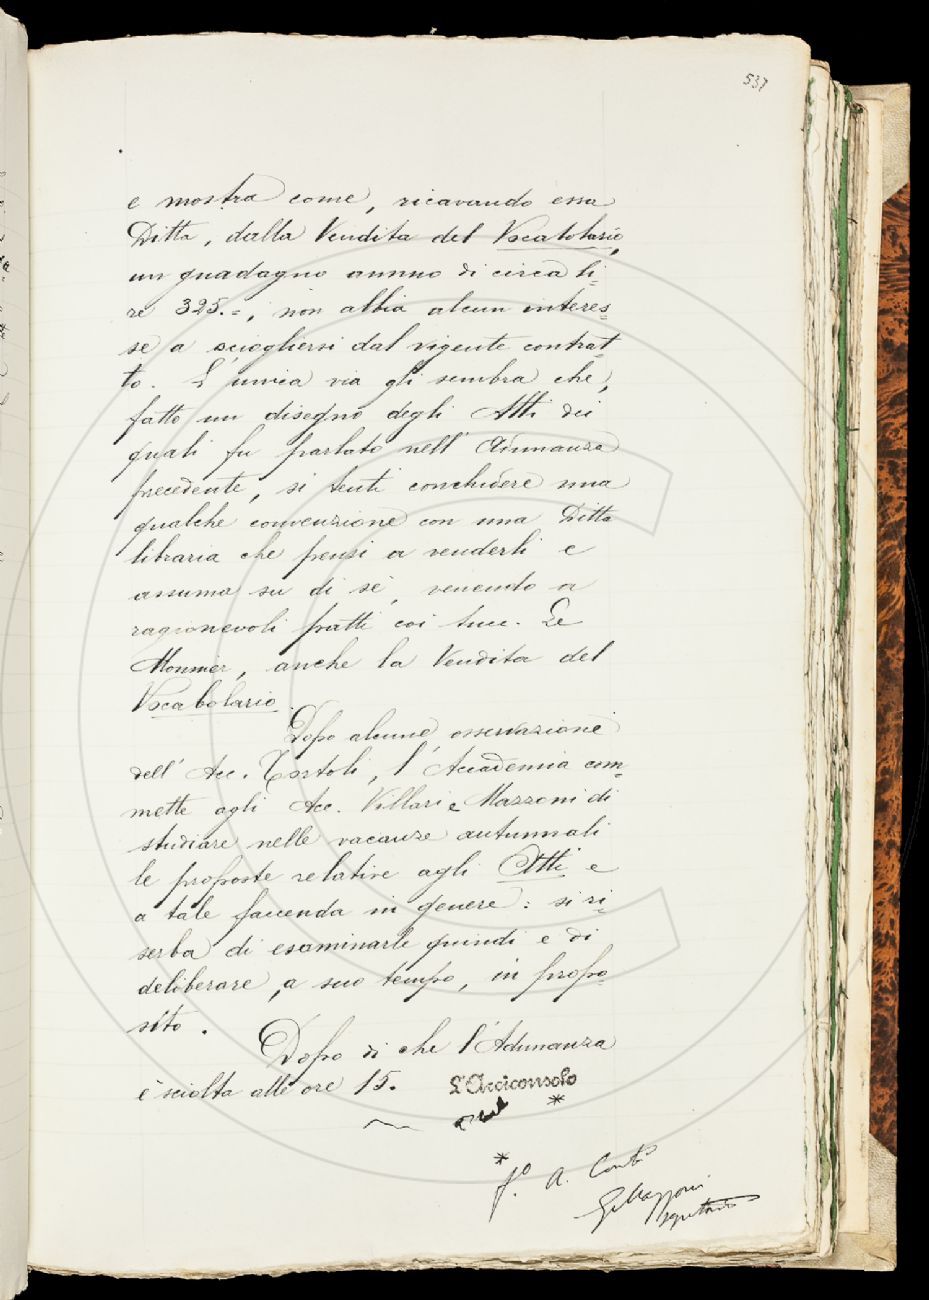 537
e mostra come, ricavando essa
Ditta, dalla Vendita del Vocabolario,
un guadagno annuo di circa li-
re 325.=, non abbia alcun interes=
se a sciogliersi dal vigente contrat-
to. L'unica via gli sembra che,
fatto un disegno degli Atti dei
quali fu parlato nell'Adunanza
precedente, si tenti conchidere una
qualche convenzione con una Ditta
libraria che pensi a venderli e
assuma su di sè, venendo a
ragionevoli patti coi succ. Le
Monnier, anche la Vendita del
Vocabolario.
Dopo alcune osservazione
dell'Acc. Tortoli, l'Accademia com-
mette agli Acc. Villari e Mazzoni di
studiare nelle vacanze autunnali
le proposte relative agli Atti e
a tale faccenda in genere: si ri-
serba di esaminarle quindi e di
deliberare, a suo tempo, in propo-
sito.
Dopo di che l'Adunanza
è sciolta alle ore 15.
L'Arciconsolo
*
* f.º A. Conti
G. Mazzoni
segretario